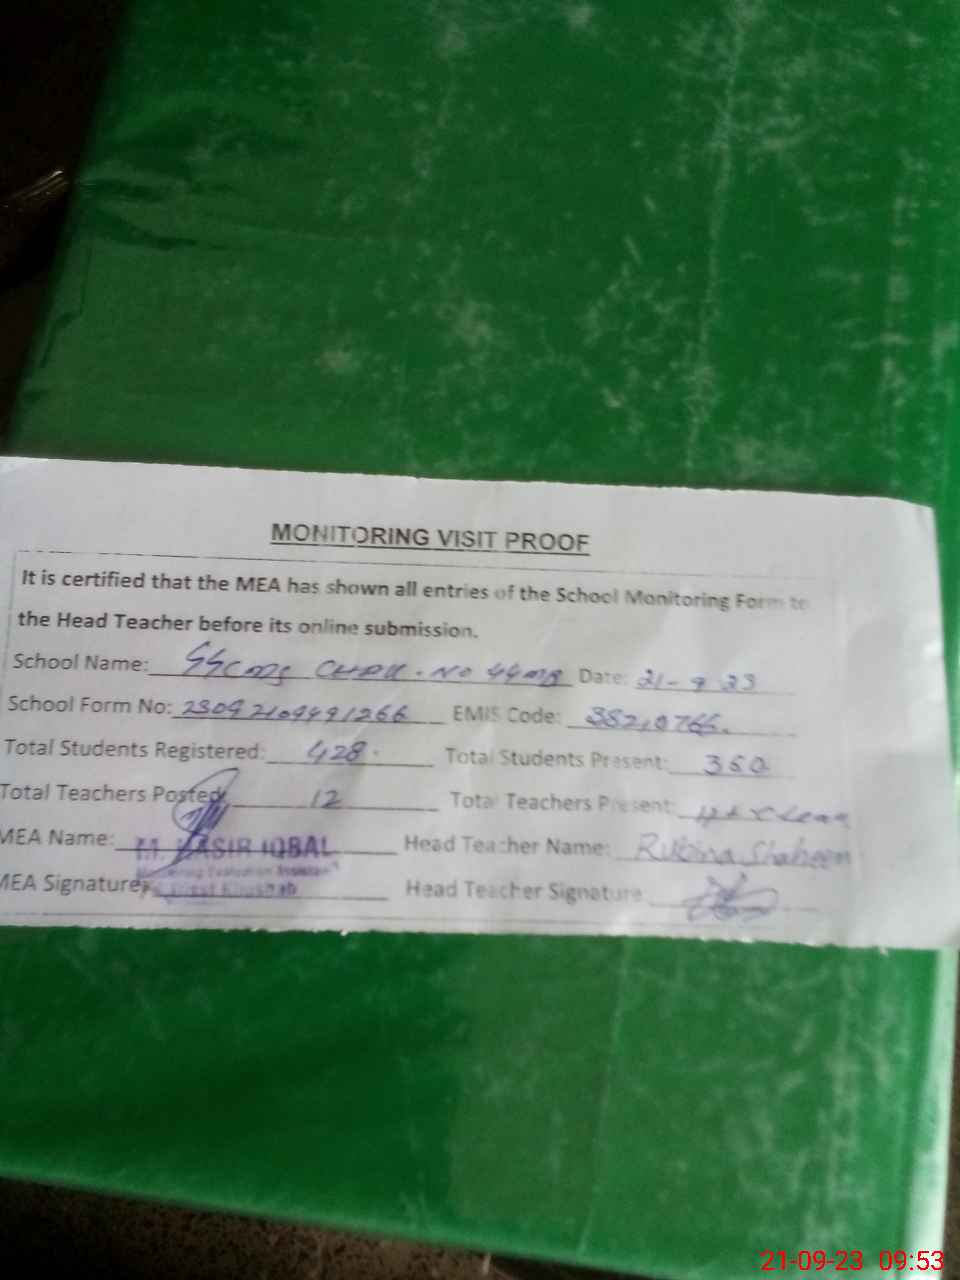 MONITORING VISIT PROOF
It is certified that the MEA has shown all entries of the School Monitoring Form to
the Head Teacher before its online submission.
School Name: CHAK. No 44MB Date: 21-9-23
School Form No: 23092109491266 EMIS Code: 38210766.
Total Students Registered: 428 Total Students Present: 360
Total Teachers Posted: 12 Total Teachers Present:
MEA Name: M. YASIR IQBAL Head Teacher Name: Rubina Shaheen
Monitoring Evaluation Assistant
MEA Signature: Khushab Head Teacher Signature
21-09-23 09:53